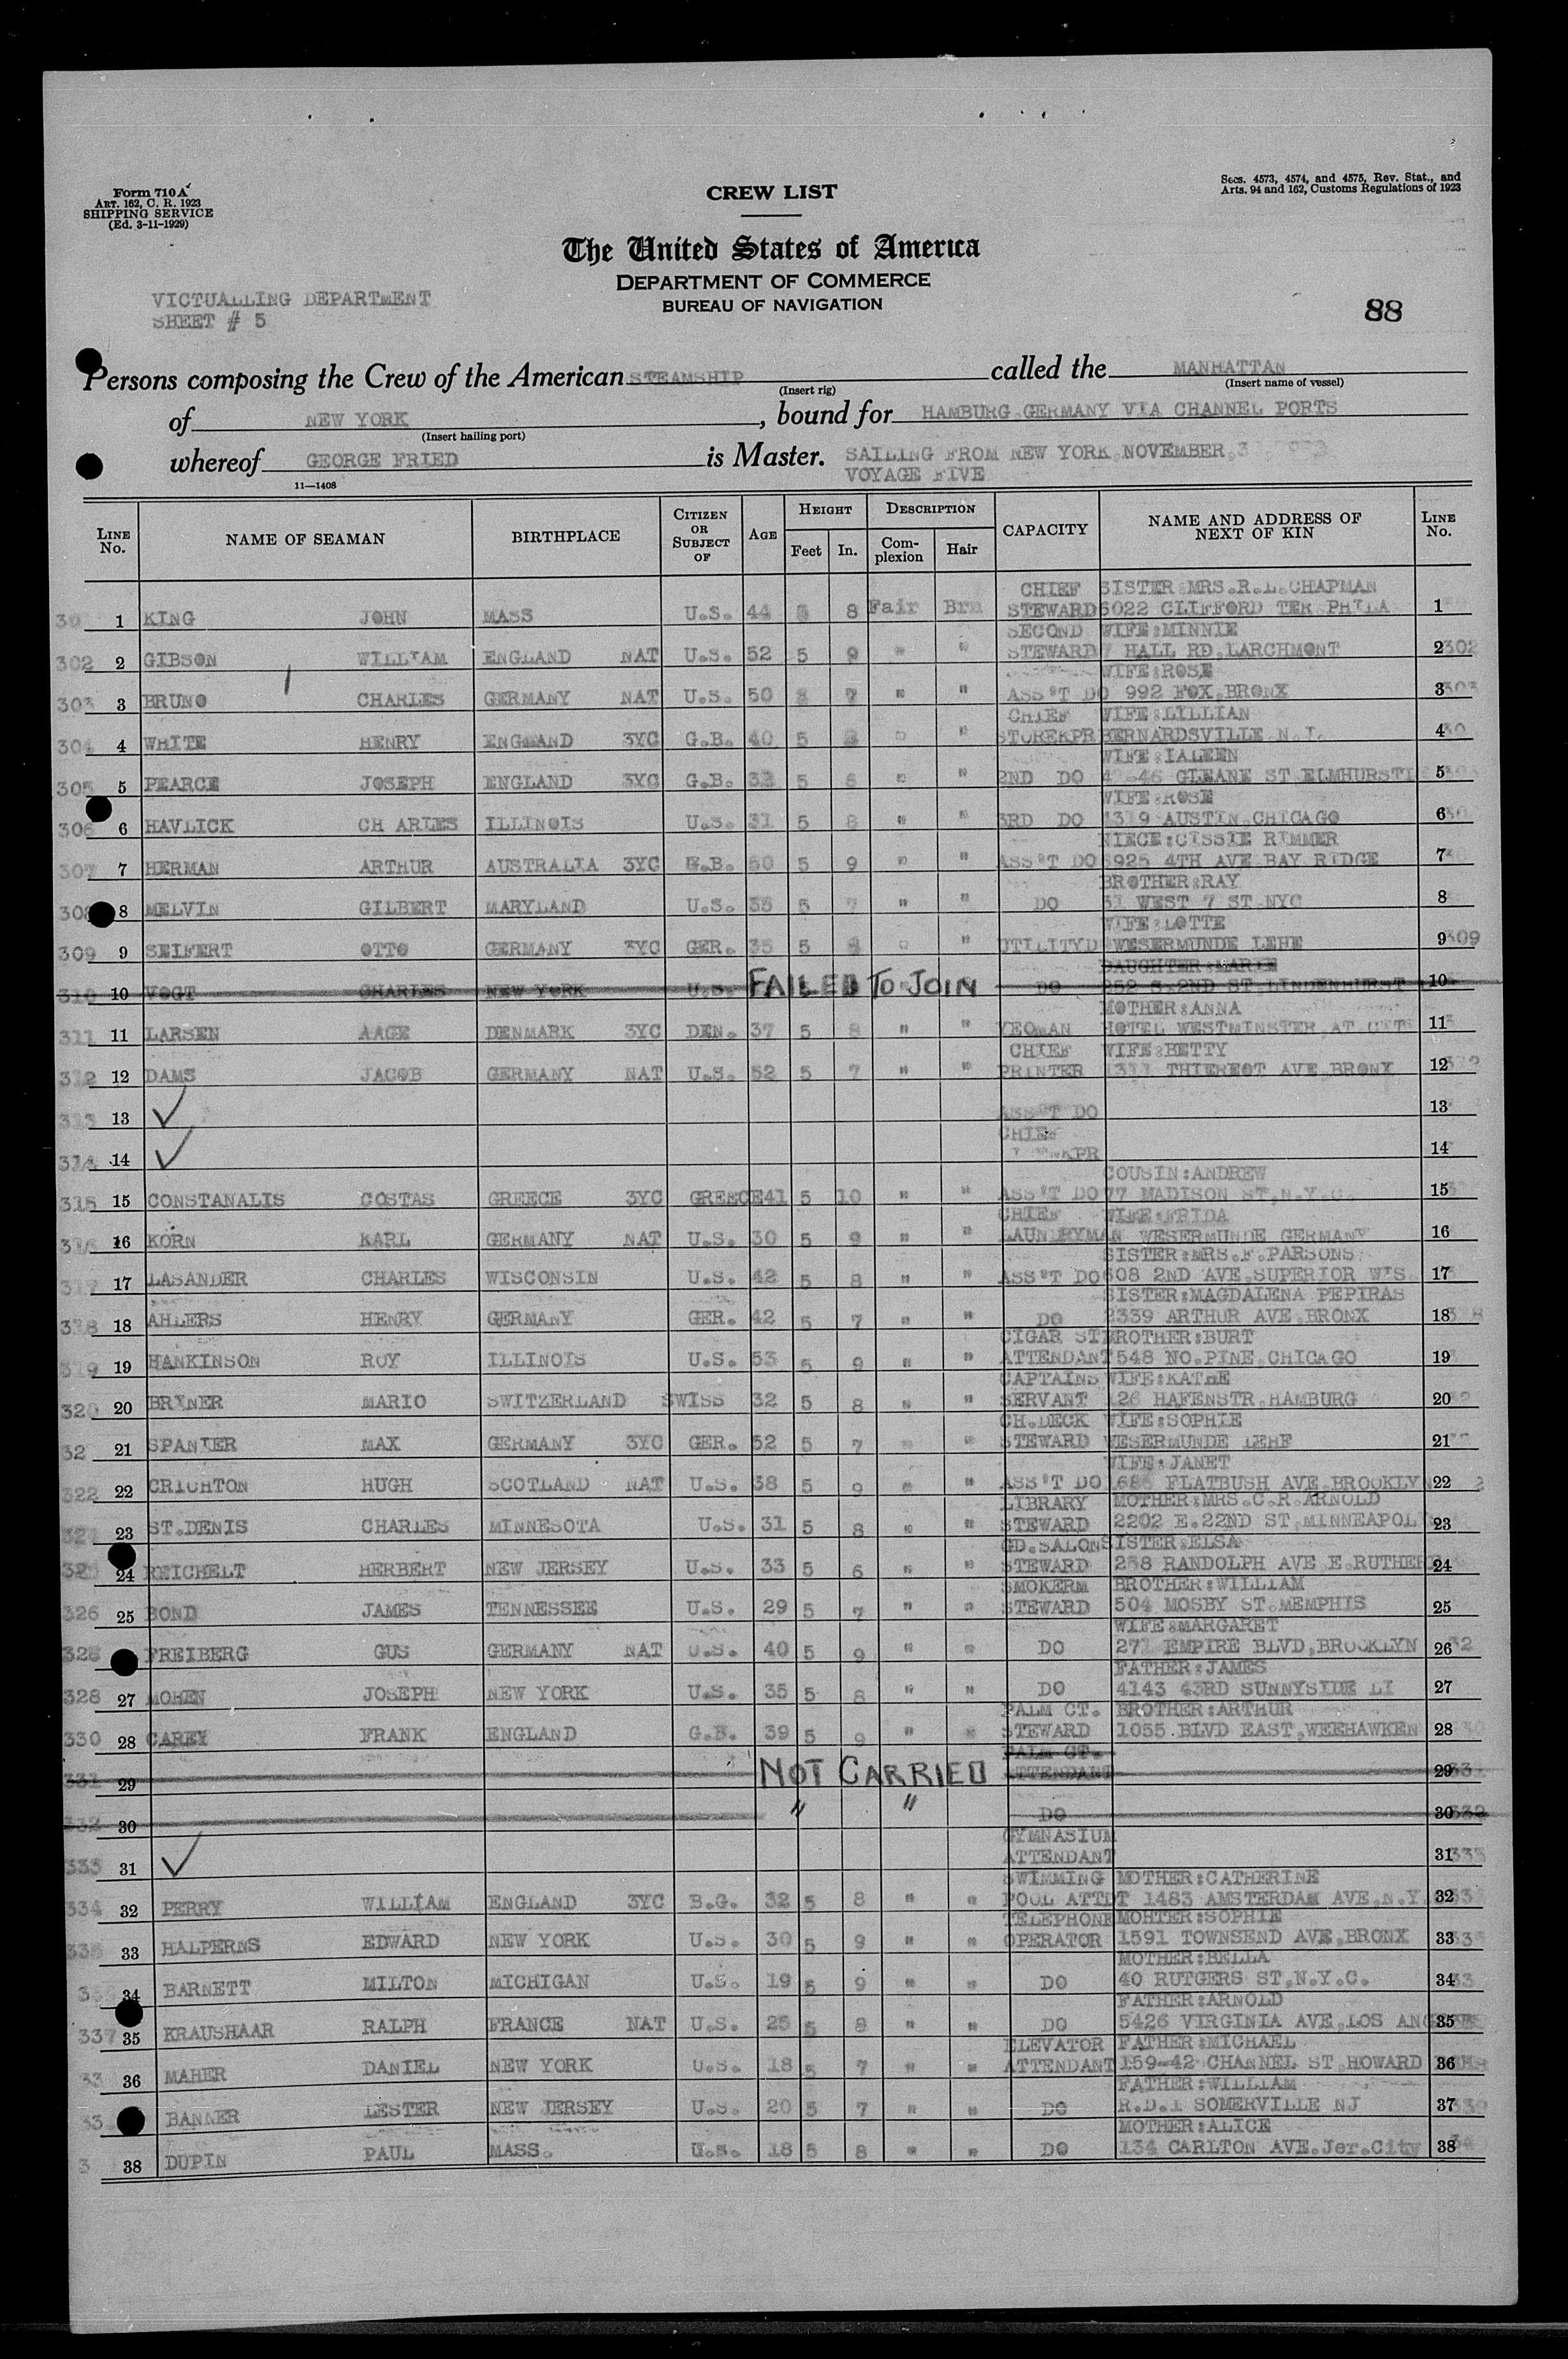 Form 710 A
ART. 162, C. R. 1923
SHIPPING SERVICE
(Ed. 3-11-1929)
CREW LIST
Secs. 4573, 4574, and 4575, Rev. Stat., and
Arts. 94 and 162, Customs Regulations of 1923
The United States of America
DEPARTMENT OF COMMERCE
BUREAU OF NAVIGATION
VICTUALLING DEPARTMENT
SHEET # 5
88
Persons composing the Crew of the American STEAMSHIP called the MANHATTAN
(Insert rig) (Insert name of vessel)
of NEW YORK, bound for HAMBURG GERMANY VIA CHANNEL PORTS
(Insert hailing port)
whereof GEORGE FRIED is Master. SAILING FROM NEW YORK, NOVEMBER,
VOYAGE FIVE
11—1408
LINE No. NAME OF SEAMAN BIRTHPLACE CITIZEN OR SUBJECT OF AGE HEIGHT Feet In. DESCRIPTION Complexion Hair CAPACITY NAME AND ADDRESS OF NEXT OF KIN LINE No.
CHIEF SISTER:MRS.R.L.CHAPMAN
1 KING JOHN MASS U.S. 44 8 Fair Brn STEWARD 5022 CLIFFORD TER PHILA 1
SECOND WIFE:MINNIE
302 2 GIBSON WILLIAM ENGLAND NAT U.S. 52 5 9 " " STEWARD 7 HALL RD,LARCHMONT 2 302
WIFE:ROSE
303 3 BRUNO CHARLES GERMANY NAT U.S. 50 7 " " ASS'T DO 992 FOX,BRONX 3 303
CHIEF WIFE:LILLIAN
304 4 WHITE HENRY ENGMAND 3YC G.B. 40 5 " " STOREKPR BERNARDSVILLE N.J. 4
WIFE:IALEEN
305 5 PEARCE JOSEPH ENGLAND 3YC G.B. 5 8 " " 2ND DO GLEANE ST ELMHURST 5
WIFE:ROSE
306 6 HAVLICK CH ARLES ILLINOIS U.S. 31 5 8 " " 3RD DO 1319 AUSTIN,CHICAGO 6
NIECE:CISSIE RIMMER
307 7 HERMAN ARTHUR AUSTRALIA 3YC G.B. 5 9 " " ASS'T DO 6925 4TH AVE BAY RIDGE 7
BROTHER:RAY
8 MELVIN GILBERT MARYLAND U.S. 35 5 7 " " DO 51 WEST 7 ST NYC 8
WIFE:LOTTE
309 9 SEIFERT OTTO GERMANY 3YC GER. 35 5 8 " " UTILITY WESERMUNDE LEHE 9 309
DAUGHTER:MARIE
310 10 VOGT CHARLES NEW YORK U.S. FAILED TO JOIN DO 252 S.2ND ST.LINDENHURST 10
MOTHER:ANNA
311 11 LARSEN AAGE DENMARK 3YC DEN. 37 5 8 " " YEOMAN HOTEL WESTMINSTER 11
CHIEF WIFE:BETTY
312 12 DAMS JACOB GERMANY NAT U.S. 52 5 7 " " PRINTER THIEREOT AVE BRONX 12
313 13 ✓ ASS'T DO 13
CHIEF
314 14 ✓ 14
COUSIN:ANDREW
315 15 CONSTANALIS COSTAS GREECE 3YC GREECE 41 5 10 " " ASS'T DO 77 MADISON ST,N.Y.C. 15
CHIEF WIFE:FRIDA
316 16 KORN KARL GERMANY NAT U.S. 30 5 9 " " LAUNDRYMAN WESERMUNDE GERMANY 16
SISTER:MRS.F.PARSONS
317 17 LASANDER CHARLES WISCONSIN U.S. 42 5 8 " " ASS'T DO 608 2ND AVE,SUPERIOR WIS. 17
SISTER:MAGDALENA PEPIRAS
318 18 AHLERS HENRY GERMANY GER. 42 5 7 " " DO 2339 ARTHUR AVE BRONX 18
CIGAR ST BROTHER:BURT
319 19 HANKINSON ROY ILLINOIS U.S. 53 5 9 " " ATTENDANT 548 NO.PINE,CHICAGO 19
CAPTAINS WIFE:KATHE
320 20 BRYNER MARIO SWITZERLAND SWISS 32 5 8 " " SERVANT 126 HAFENSTR.HAMBURG 20
CH.DECK WIFE:SOPHIE
21 SPANIER MAX GERMANY 3YC GER. 52 5 7 " " STEWARD WESERMUNDE LEHE 21
WIFE:JANET
322 22 CRICHTON HUGH SCOTLAND NAT U.S. 38 5 9 " " ASS'T DO FLATBUSH AVE BROOKLYN 22
LIBRARY MOTHER:MRS.C.R.ARNOLD
23 ST.DENIS CHARLES MINNESOTA U.S. 31 5 8 " " STEWARD 2202 E.22ND ST,MINNEAPOL 23
GD.SALON SISTER:ELSA
24 REICHELT HERBERT NEW JERSEY U.S. 33 5 6 " " STEWARD 238 RANDOLPH AVE E.RUTHER 24
SMOKERM BROTHER:WILLIAM
326 25 BOND JAMES TENNESSEE U.S. 29 5 7 " " STEWARD 504 MOSBY ST.MEMPHIS 25
WIFE:MARGARET
FREIBERG GUS GERMANY NAT U.S. 40 5 9 " " DO 271 EMPIRE BLVD,BROOKLYN 26
FATHER:JAMES
328 27 MOHEN JOSEPH NEW YORK U.S. 35 5 8 " " DO 4143 43RD SUNNYSIDE LI 27
PALM CT. BROTHER:ARTHUR
330 28 CAREY FRANK ENGLAND G.B. 39 5 9 " " STEWARD 1055 BLVD EAST,WEEHAWKEN 28
PALM CT.
331 29 NOT CARRIED ATTENDANT 29
30 " " DO 30 332
GYMNASIUM
333 31 ✓ ATTENDANT 31 333
SWIMMING MOTHER:CATHERINE
334 32 PERRY WILLIAM ENGLAND 3YC B.G. 32 5 8 " " POOL ATTDT 1483 AMSTERDAM AVE,N.Y. 32
TELEPHONE MOHTER:SOPHIE
335 33 HALPERNS EDWARD NEW YORK U.S. 30 5 9 " " OPERATOR 1591 TOWNSEND AVE,BRONX 33
MOTHER:BELLA
34 BARNETT MILTON MICHIGAN U.S. 19 5 9 " " DO 40 RUTGERS ST,N.Y.C. 34
FATHER:ARNOLD
337 35 KRAUSHAAR RALPH FRANCE NAT U.S. 25 5 8 " " DO 5426 VIRGINIA AVE,LOS 35
ELEVATOR FATHER:MICHAEL
36 MAHER DANIEL NEW YORK U.S. 18 5 7 " " ATTENDANT 159-42 CHANNEL ST,HOWARD 36
FATHER:WILLIAM
BANNER LESTER NEW JERSEY U.S. 20 5 7 " " DO R.D.1 SOMERVILLE NJ 37
MOTHER:ALICE
38 DUPIN PAUL MASS. U.S. 18 5 8 " " DO 134 CARLTON AVE.Jer.City 38